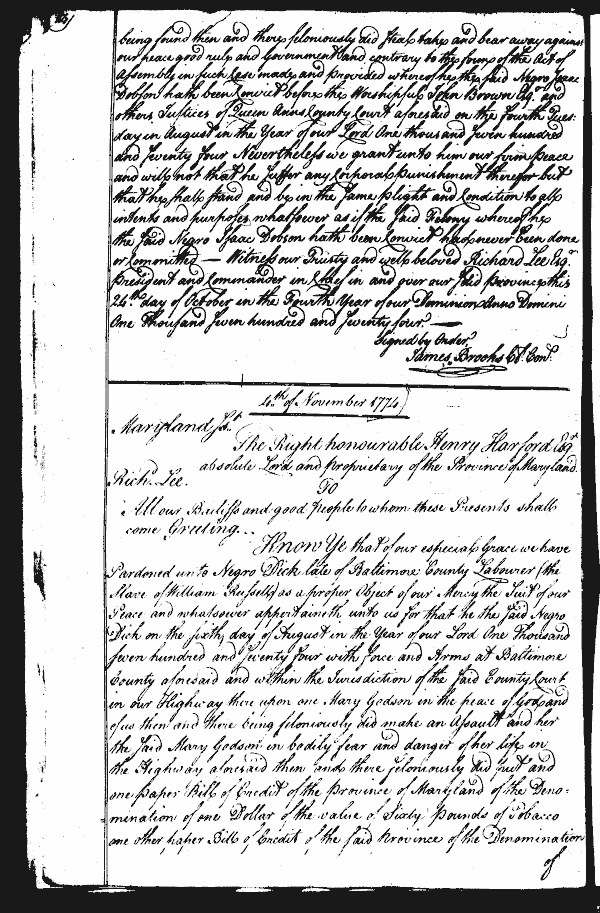 being found then and there feloniously did steal take and bear away against
our peace good rule and Government and contrary to the form of the Act of
Assembly in such Case made and provided whereof he the said Negro Isaac
Dobson hath been Convict before the Worshipful John Brown Esqr. and
others Justices of Queen Anns County Court aforesaid on the fourth Tues-
day in August in the Year of our Lord One thousand seven hundred
and seventy four Nevertheless we grant unto him our firm Peace
and will not that he suffer any Corporal Punishment therefor but
that he shall stand and be in the same plight and Condition to all
intents and purposes whatsoever as if the said Felony whereof he
the said Negro Isaac Dobson hath been Convict had never been done
or Committed — Witness our Trusty and well beloved Richard Lee Esqr.
President and Commander in Chief in and over our said Province this
24th day of October in the Fourth Year of our Dominion Anno Domini
One Thousand seven hundred and seventy four. —
Signed by Order.
James Brooks Cl. Con.
4th of November 1774
Maryland Sst.
The Right honourable Henry Harford Esqr
absolute Lord and Proprietary of the Province of Maryland
Richd. Lee.
To
All our Bailiffs and good people to whom these Presents shall
come Greeting...
Know Ye that of our especial Grace we have
Pardoned unto Negro Dick late of Baltimore County Labourer (the
Slave of William Russell) as a proper Object of our Mercy the Suit of our
Peace and whatsoever appertaineth unto us for that he the said Negro
Dick on the sixth day of August in the Year of our Lord One Thousand
seven hundred and seventy four with force and Arms at Baltimore
County aforesaid and within the Jurisdiction of the said County Court
in our Highway there upon one Mary Godson in the peace of God and
of us then and there being feloniously did make an Assault and her
the said Mary Godson in bodily fear and danger of her life in
the Highway aforesaid then and there feloniously did put and
one paper Bill of Credit of the Province of Maryland of the Deno-
mination of one Dollar of the value of Sixty pounds of Tobacco
one other paper Bill of Credit of the said Province of the Denomination
of